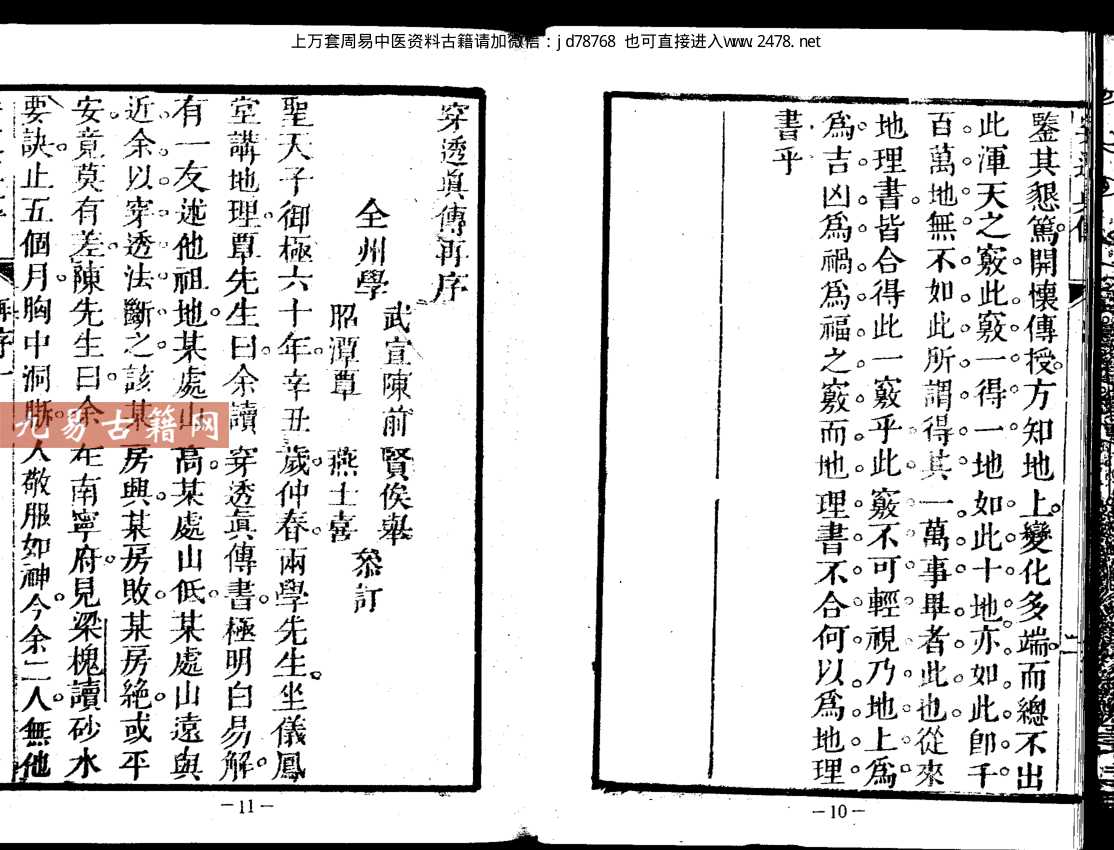 上万套周易中医资料古籍请加微信：jd78768 也可直接进入www.2478.net
鑒其懇篤開懷傳授方知地上變化多端而總不出
此渾天之竅此竅一得一地如此十地亦如此卽千
百萬地無不如此所謂得其一萬事畢者此也從來
地理書皆合得此一竅乎此竅不可輕視乃地上爲
爲吉凶爲禍爲福之竅而地理書不合何以爲地理
書乎
－10－
穿透眞傳再序
武宣陳前賢俟舉
全州學
參訂
昭潭覃
燕士喜
聖天子御極六十年辛丑歲仲春兩學先生坐儀鳳
堂講地理覃先生曰余讀穿透眞傳書極明白易解
有一友述他祖地某處山高某處山低某處山遠與
近余以穿透法斷之該某房興某房敗某房絕或平
安竟莫有差陳先生曰余在南寧府見梁槐讀砂水
要訣止五個月胸中洞
人敬服如神今余二人無他
再序
－11－
九易古籍网